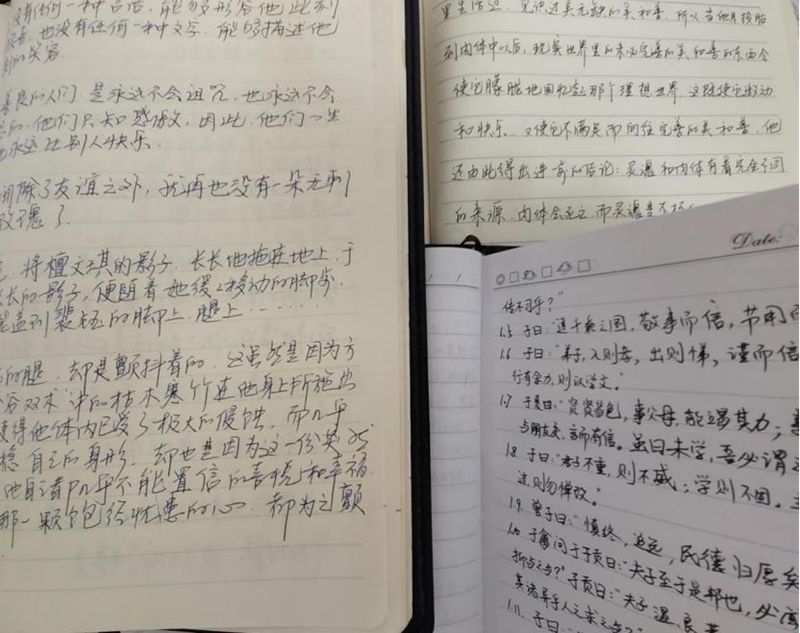 没有任何一种言语，能够形容他此刻
也没有任何一种文字，能够描述他
的笑容
善良的人们，是永远不会诅咒，也永远不会
他们只知感激，因此，他们一生
永远比别人快乐．
除了友谊之外，我再也没有一朵无刺
玫瑰了．
将檀文琪的影子，长长地拖在地上，于
长长的影子，便随着她缓缓移动的脚步，
裴珏的脚上，腿上……
的腿，却是颤抖着的．这虽然是因为方
双木”中的枯木寒竹在他身上所施出
使得他体内已受了极大的侵蚀，而几乎
稳自己的身形，却也是因为这一份
他自者几乎不能置信的喜悦和幸福
那一颗饱经忧患的心，都为之颤
见识过美无缺的美和善，所以当他月投胎
到肉体中以后，现实世界里的未必完善的美和善的东西会
使它朦胧地回忆起那个理想世界，这既使它激动
和快乐，又使它不满足而向往完善的美和善．他
还由此得出进一步的结论：灵魂和肉体有着完全不同
的来源，肉体会死亡，而灵魂是不
Date:
传不习乎？”
1.5 子曰：“道千乘之国，敬事而信，节用而
1.6 子曰：“弟子，入则孝，出则悌，谨而信
行有余力，则以学文．”
1.7 子夏曰：“贤贤易色，事父母，能竭其力；
与朋友交，言而有信．虽曰未学，吾必谓之
1.8 子曰：“君子不重，则不威；学则不固．主
过，则勿惮改．”
1.9. 曾子曰：“慎终，追远，民德归厚矣
1.10. 子禽问于子贡曰：“夫子至于是邦也，必闻
抑与之与？”子贡曰：“夫子温、良、
其诸异乎人之求之与？
1.11. 子曰：